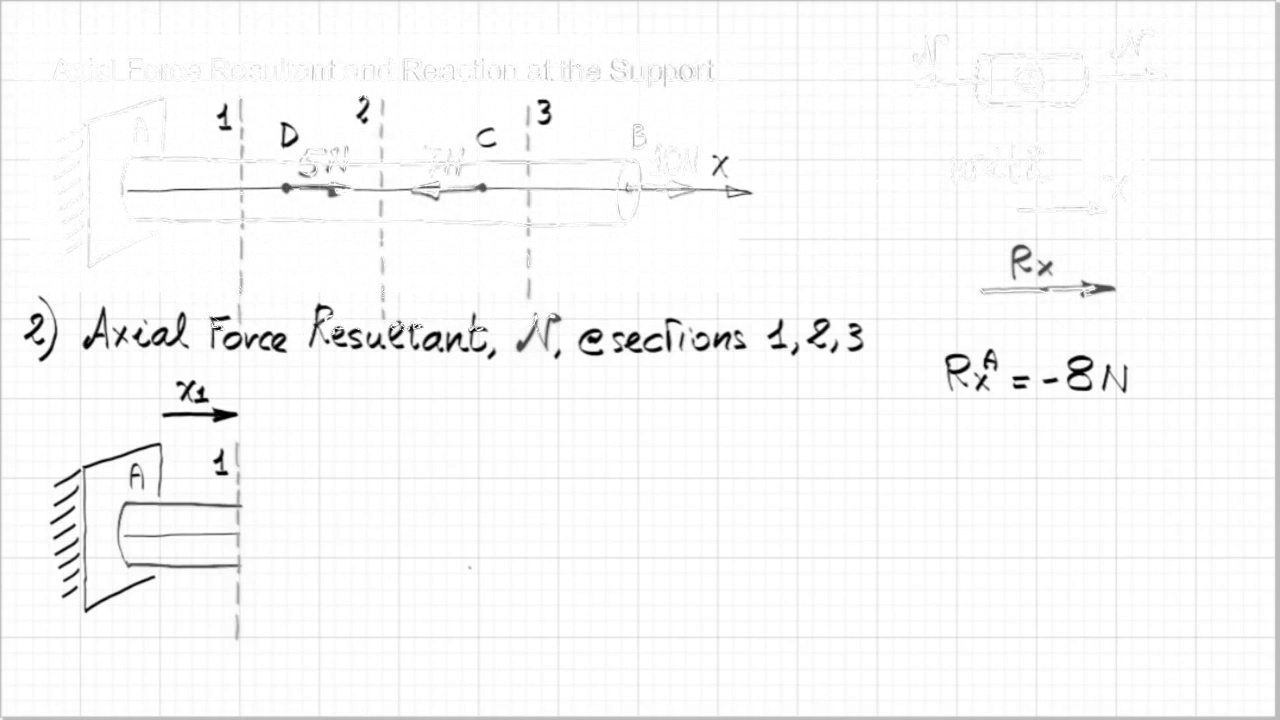 Axial Force Resultant and Reaction at the Support
N N
A 1 D 2 C 3 B
5N 7N 10N X
X
Rx
2) Axial Force Resultant, N, @ sections 1, 2, 3
RxA = -8N
x1
A 1